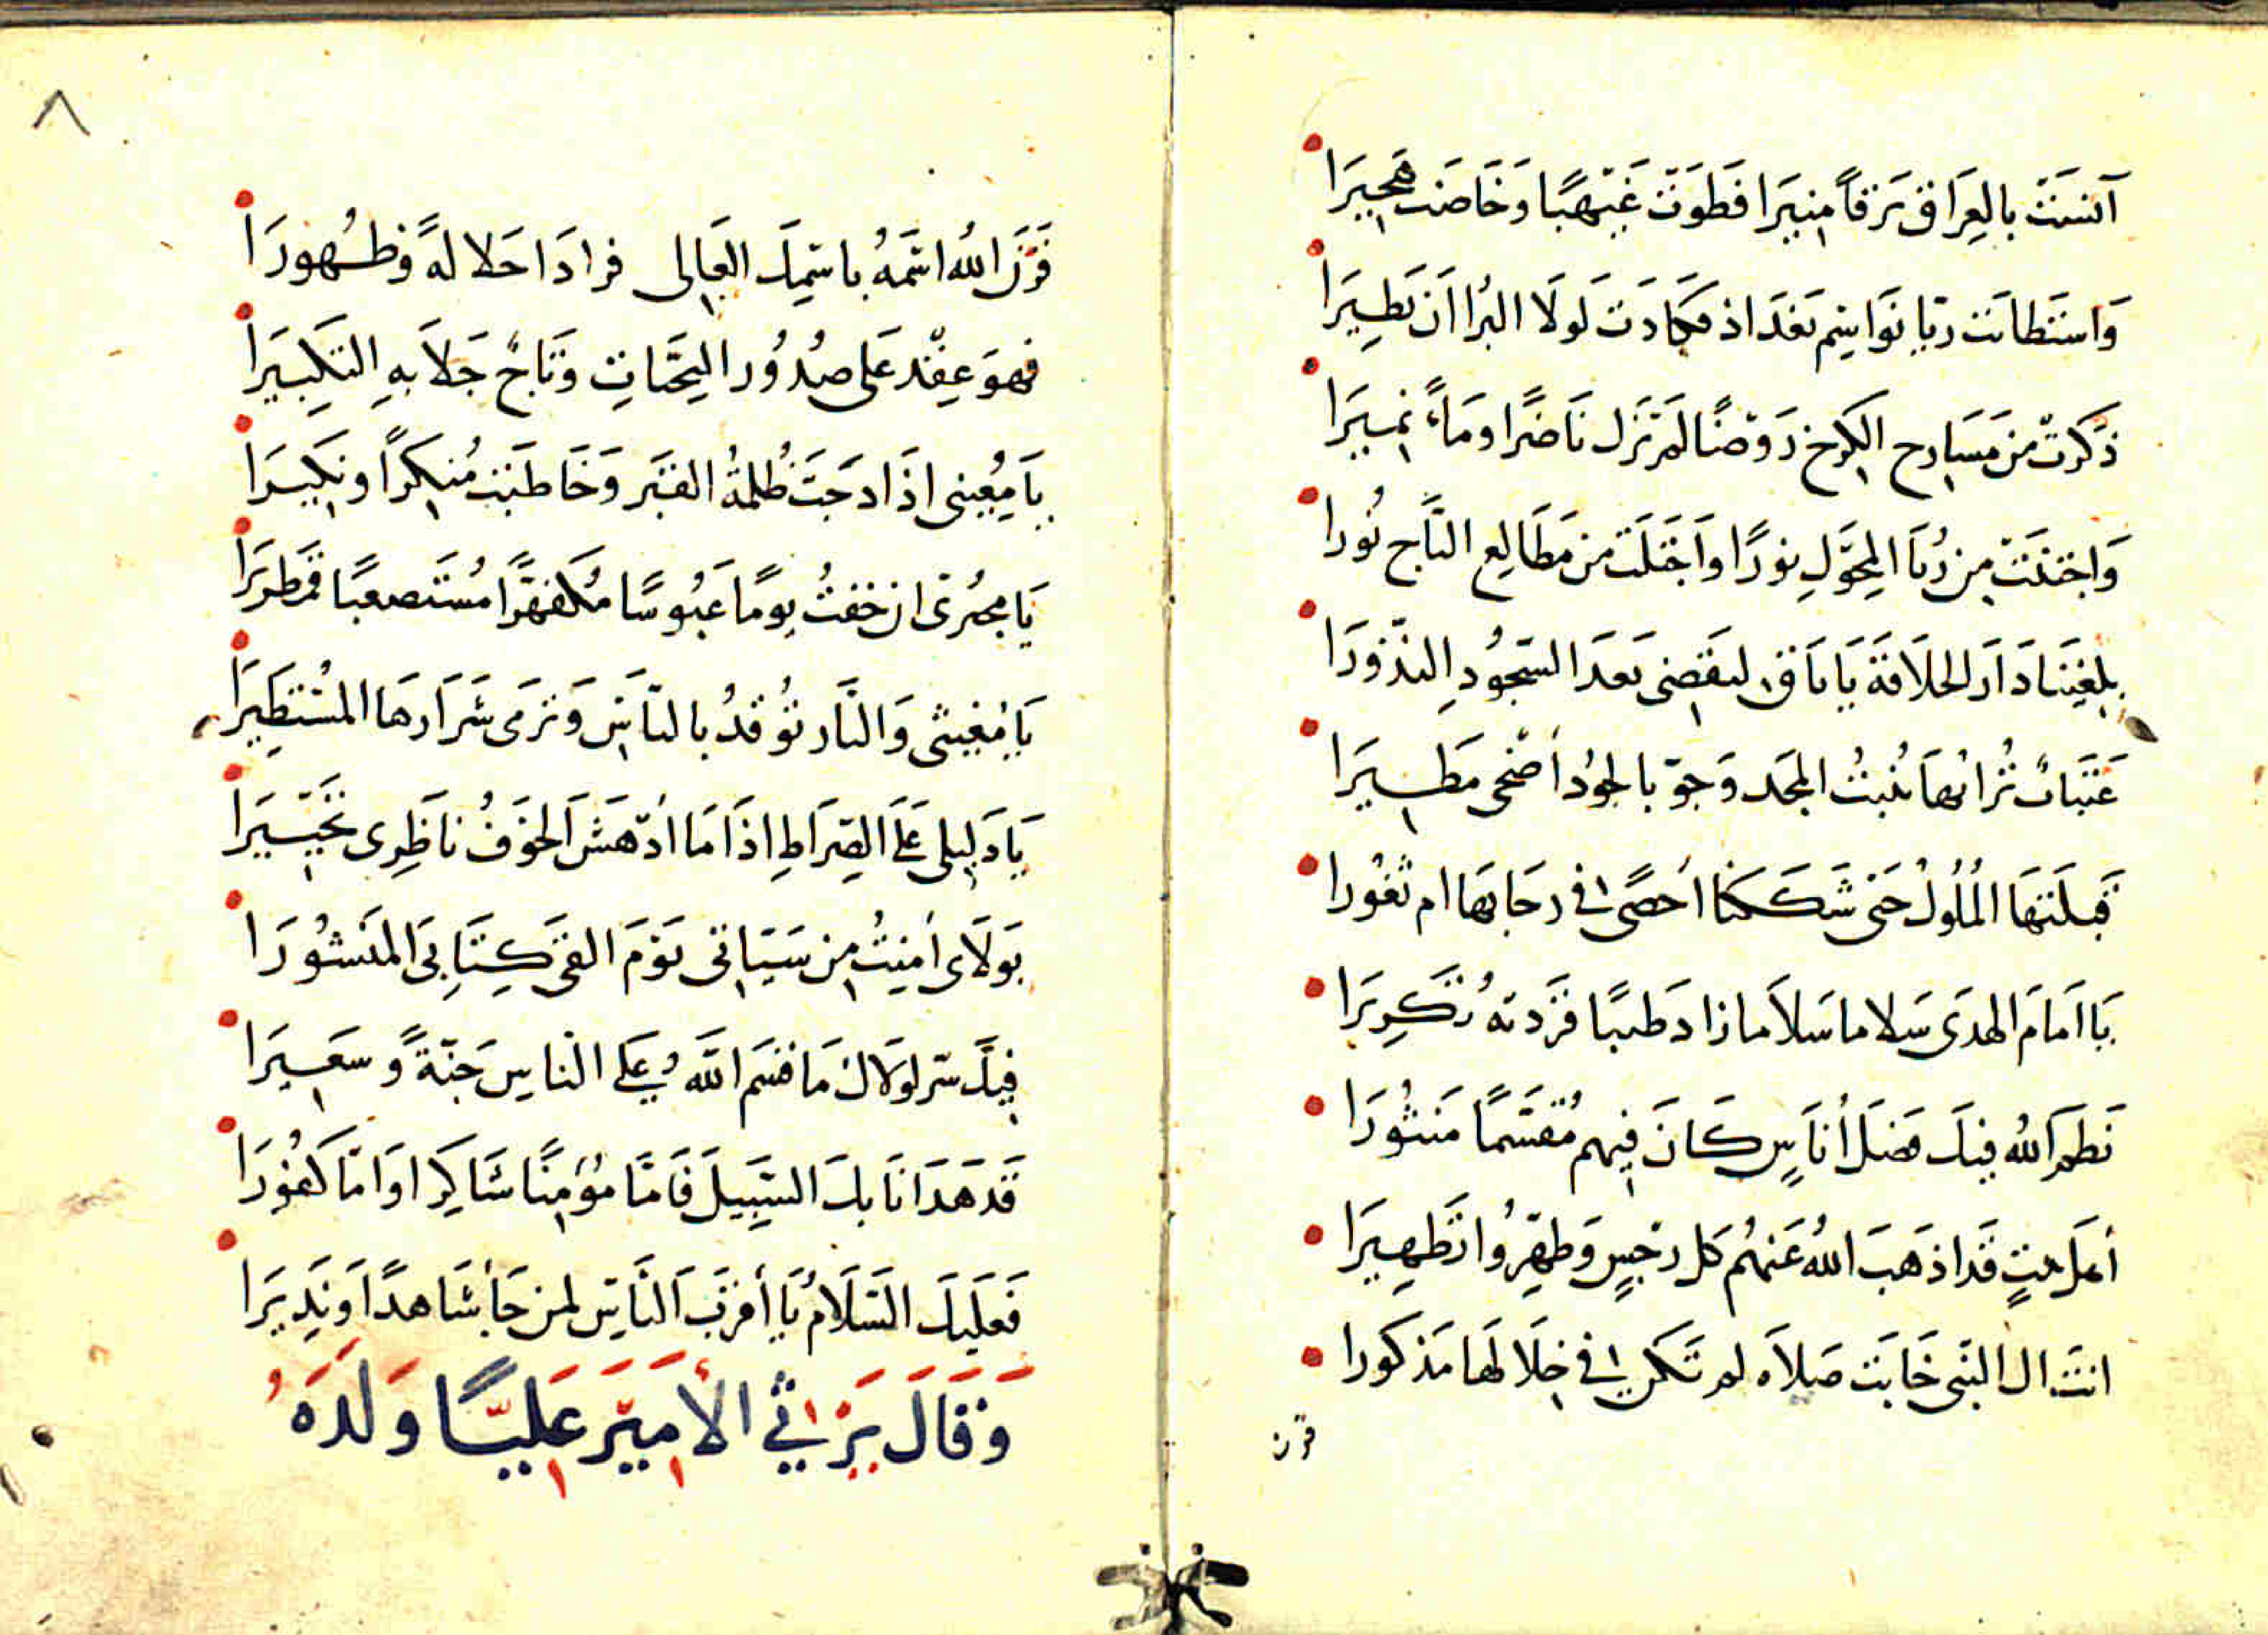 آنسَتْ بالعِرَاقِ بَرقاً منِيَرا فَطَوَتْ غَيْهبًا وَخَاضَت هَجِيَرا
وَاستَطابَت ريّا نَوَاسِم بَغدَاذ فكَادَتْ لَولَا البُرا اَن تَطِيَرا
ذكَرَتْ من مَسَارح الكرخ رَوْضًا لَمْ تَزَل نَاضرًا ومَاءً نميرَا
وَاجتنَتْ مِن رُبَا المحَوّلِ نورًا وَاجتَلَت من مَطَالع التّاج نُورا
بلغِينَا دَارَ الخلَافَة يَا نَاقُ لنقضِى بَعدَ السّجُودِ النذّورَا
عَتبَات تُرابُها يُنبتُ المجَد وَجوّ بالجوُد أضْحَى مَطِيرَا
قبلَتهَا المُلُوكُ حَتى شَكَكنا أحصًى فى رحَابهَا ام ثغُورا
يَا اَمَامَ الهدَى سَلاما سَلاَما زادَ طيبًا فزَدتهُ تكرِيرَا
نَظمَ اللهُ فيكَ فضَلَ أُنَاسٍ كَانَ فِيهم مُقسَّمًا مَنثُورَا
أهَل بيتٍ قَد اذهَبَ اللهُ عَنهُم كل رجْسٍ وَطهّرُوا تَطهِيرَا
انتَ ال النّبى خَابَت صَلاَه لم تَكن فى خِلَالهَا مَذكورا
قرن
قرَنَ اللهُ اسْمَهُ باسْمِكَ العَالى فزادَا حَلالهً وَظُهورَا
فهوَ عِقد عَلى صُدُور التحيّاتِ وَتَاجٌ جَلاَ بهِ التكبِيرَا
يَا مُعِينى اذَا دَجَتَ ظُلمةُ القبَر وَخَاطبَت مُنكرًا ونكيرَا
يَا مجيُرىَ ان خفتُ يومًا عَبُوسًا مُكفهرًّا مُستَصعبًا قمطرِيَرا
يَا مُغِيثى وَالنّار تُوقدُ بالنّاسِ وَترمَى شَرَارهَا المسُتطِيَرا
يَا دَليلى عَلَى الصِّرَاطِ اذَا مَا أدْهَشَ الخوَفُ نَاظِرِى تَحْيِيرَا
بوَلَاىَ أمِنتُ مِن سَيّاتى يَوْمَ القَى كِتَابىَ المنَشُورَا
فيكَ سّر لولَاكَ مَا قسَم اللهُ عَلى النّاسِ جَنّةً وَسعيرَا
قَد هَدَانَا بكَ السّبِيلَ فَامّا مؤمنًا شَاكِرا اوَ امّا كَفُورَا
فَعَليكَ السّلَامُ يَا أقربَ النّاسِ لمن جَأ شَاهدًا وَنَذِيرَا
وَقَالَ يَرْثِي الأمِيَر عَليًّا وَلدَهُ
٨